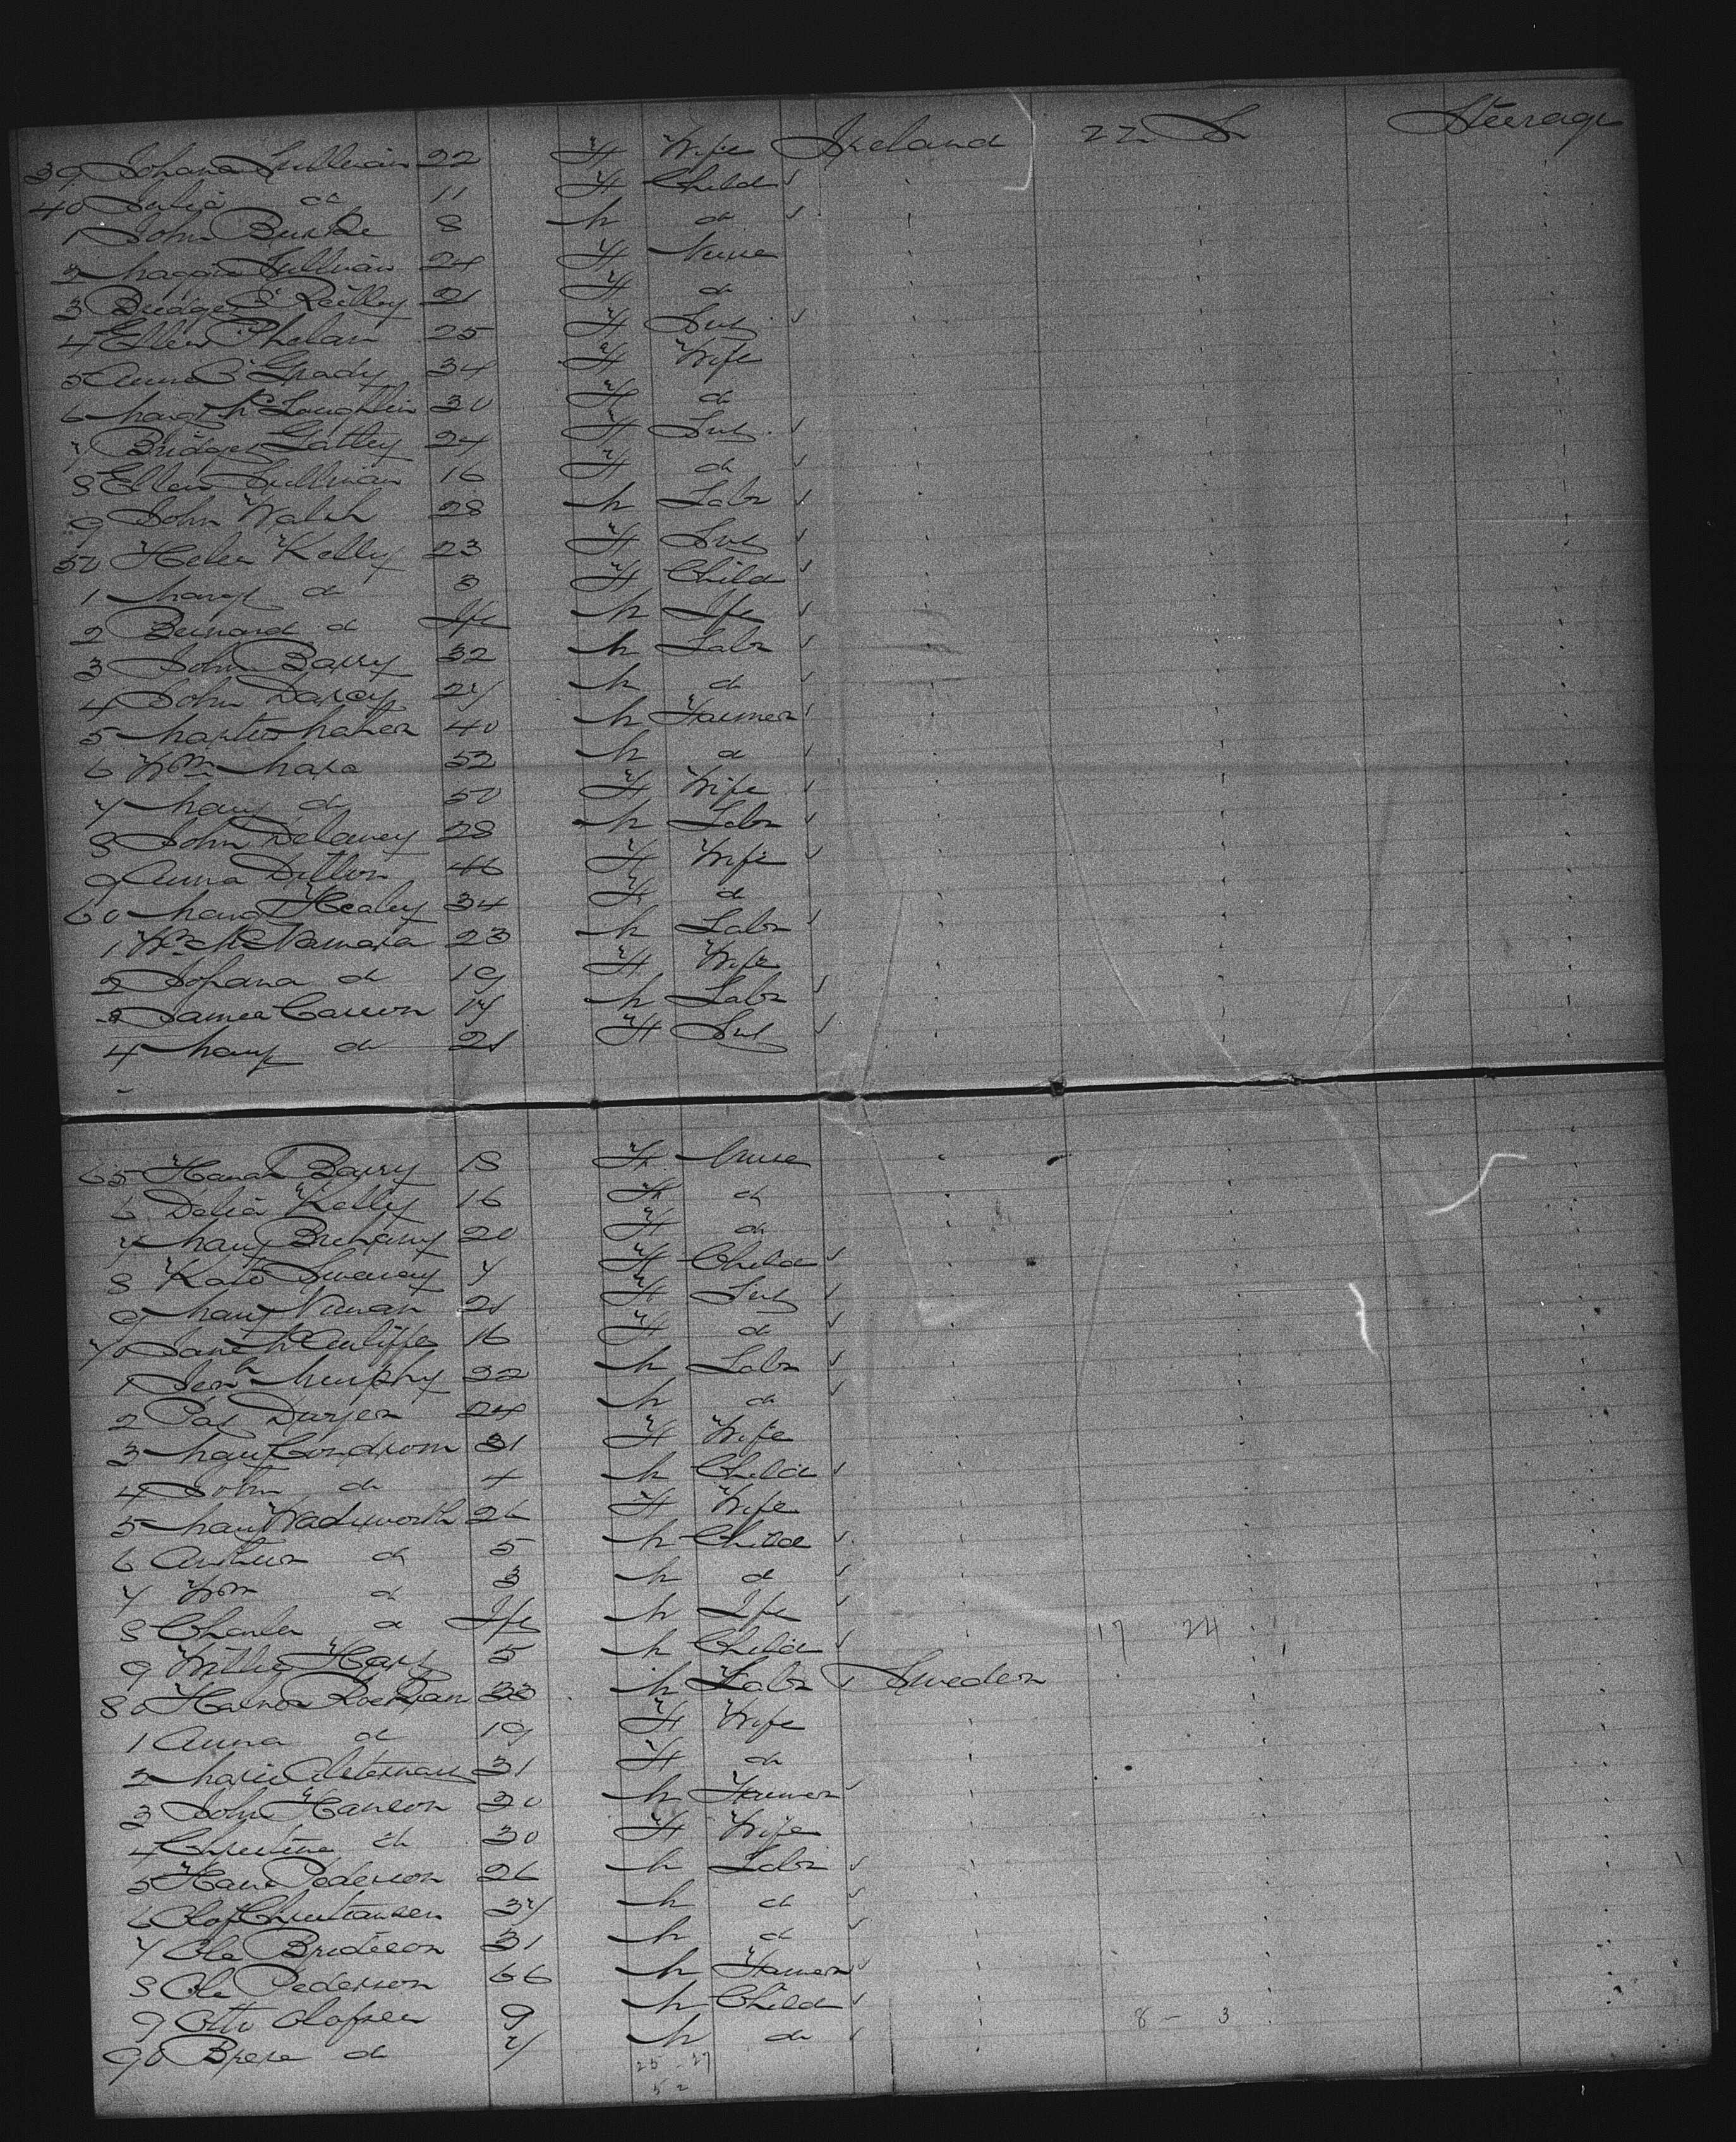 39 Johana Sullivan 22 F Wife Ireland 22 S Steerage
40 Julia do 11 F Child
1 John Burke 8 M do
2 Maggie Sullivan 24 F Nurse
3 Bridget O'Reilley 21 F do
4 Ellen Phelan 25 F Svt
5 Anna O'Grady 34 F Wife
6 Margt McLaughlin 30 F do
7 Bridget Gattey 24 F Svt
8 Ellen Sullivan 16 F do
9 John Walsh 28 M Labr
50 Helen Kelly 23 F Svt
1 Margt do 3 F Child
2 Bernard do Inft M Inft
3 John Barry 32 M Labr
4 John Darcy 27 M do
5 Martin Maher 40 M Farmer
6 Wm Mara 52 M do
7 Mary do 50 F Wife
8 John Delaney 28 M Labr
9 Anna Dillon 46 F Wife
60 Margt Healey 34 F do
1 Wm McNamara 23 M Labr
2 Johana do 19 F Wife
3 James Carron 17 M Labr
4 Mary do 21 F Svt
65 Hanah Barry 18 F Nurse
6 Delia Kelly 16 F do
7 Mary 20 F do
8 Kate Sweeney 7 F Child
9 Mary Nunan 21 F Svt
70 Jane McAuliffe 16 F do
1 Jerh Murphy 22 M Labr
2 Pat Dwyer 24 M do
3 Mary Condrom 31 F Wife
4 John do 4 M Child
5 Mary Wadsworth 26 F Wife
6 Arthur do 5 M Child
7 Wm do 3 M do
8 Charles do Inft M Inft 17 24
9 Willie Hart 5 M Child
80 33 M Labr Sweden
1 Anna do 19 F Wife
2 Marie 31 F do
3 John Hanson 30 M Farmer
4 Christine do 30 F Wife
5 Hans Pederson 26 M Labr
6 Olof Christiansen 37 M do
7 Ole 31 M do
8 Ole Pederson 66 M Farmer
9 Otto Olofsen 9 M Child 8 - 3
90 do 7 M do
25 - 27
52